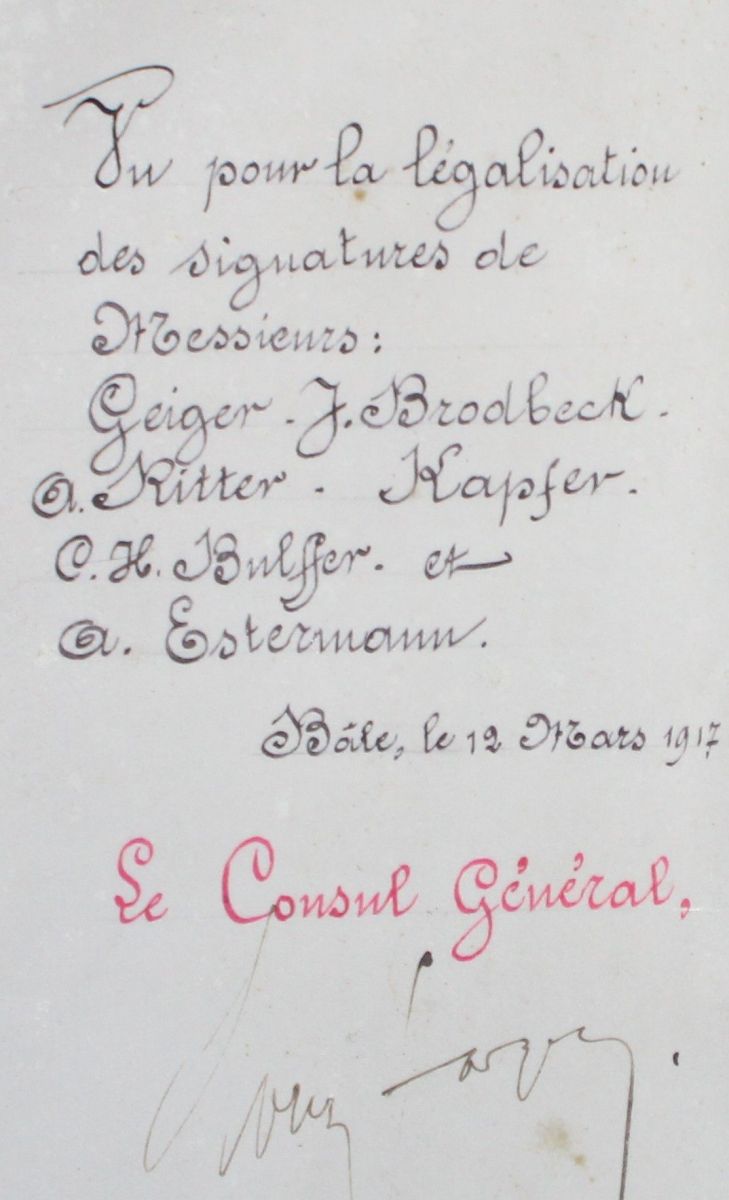 Vu pour la légalisation
des signatures de
Messieurs:
Geiger. J. Brodbeck.
A. Ritter. Kapfer.
C. H. Bulffer. et
A. Estermann.
Bâle, le 12 Mars 1917
Le Consul Général,